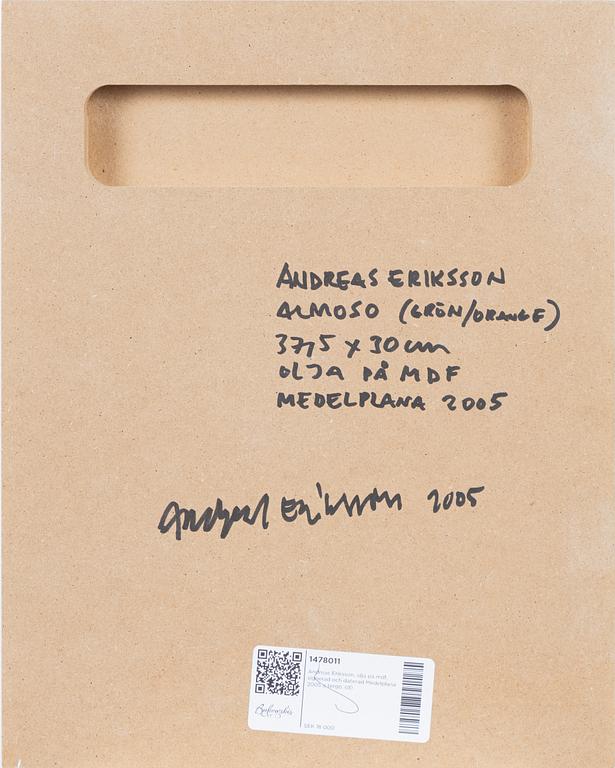 ANDREAS ERIKSSON
ALMOSO (GRÖN/ORANGE)
37,5 x 30 cm
OLJA PÅ MDF
MEDELPLANA 2005
Andreas Eriksson 2005
1478011
Andreas Eriksson, olja på mdf,
signerad och daterad Medelplana
2005 a tergo. (d)
Bukowskis
SEK 18 000